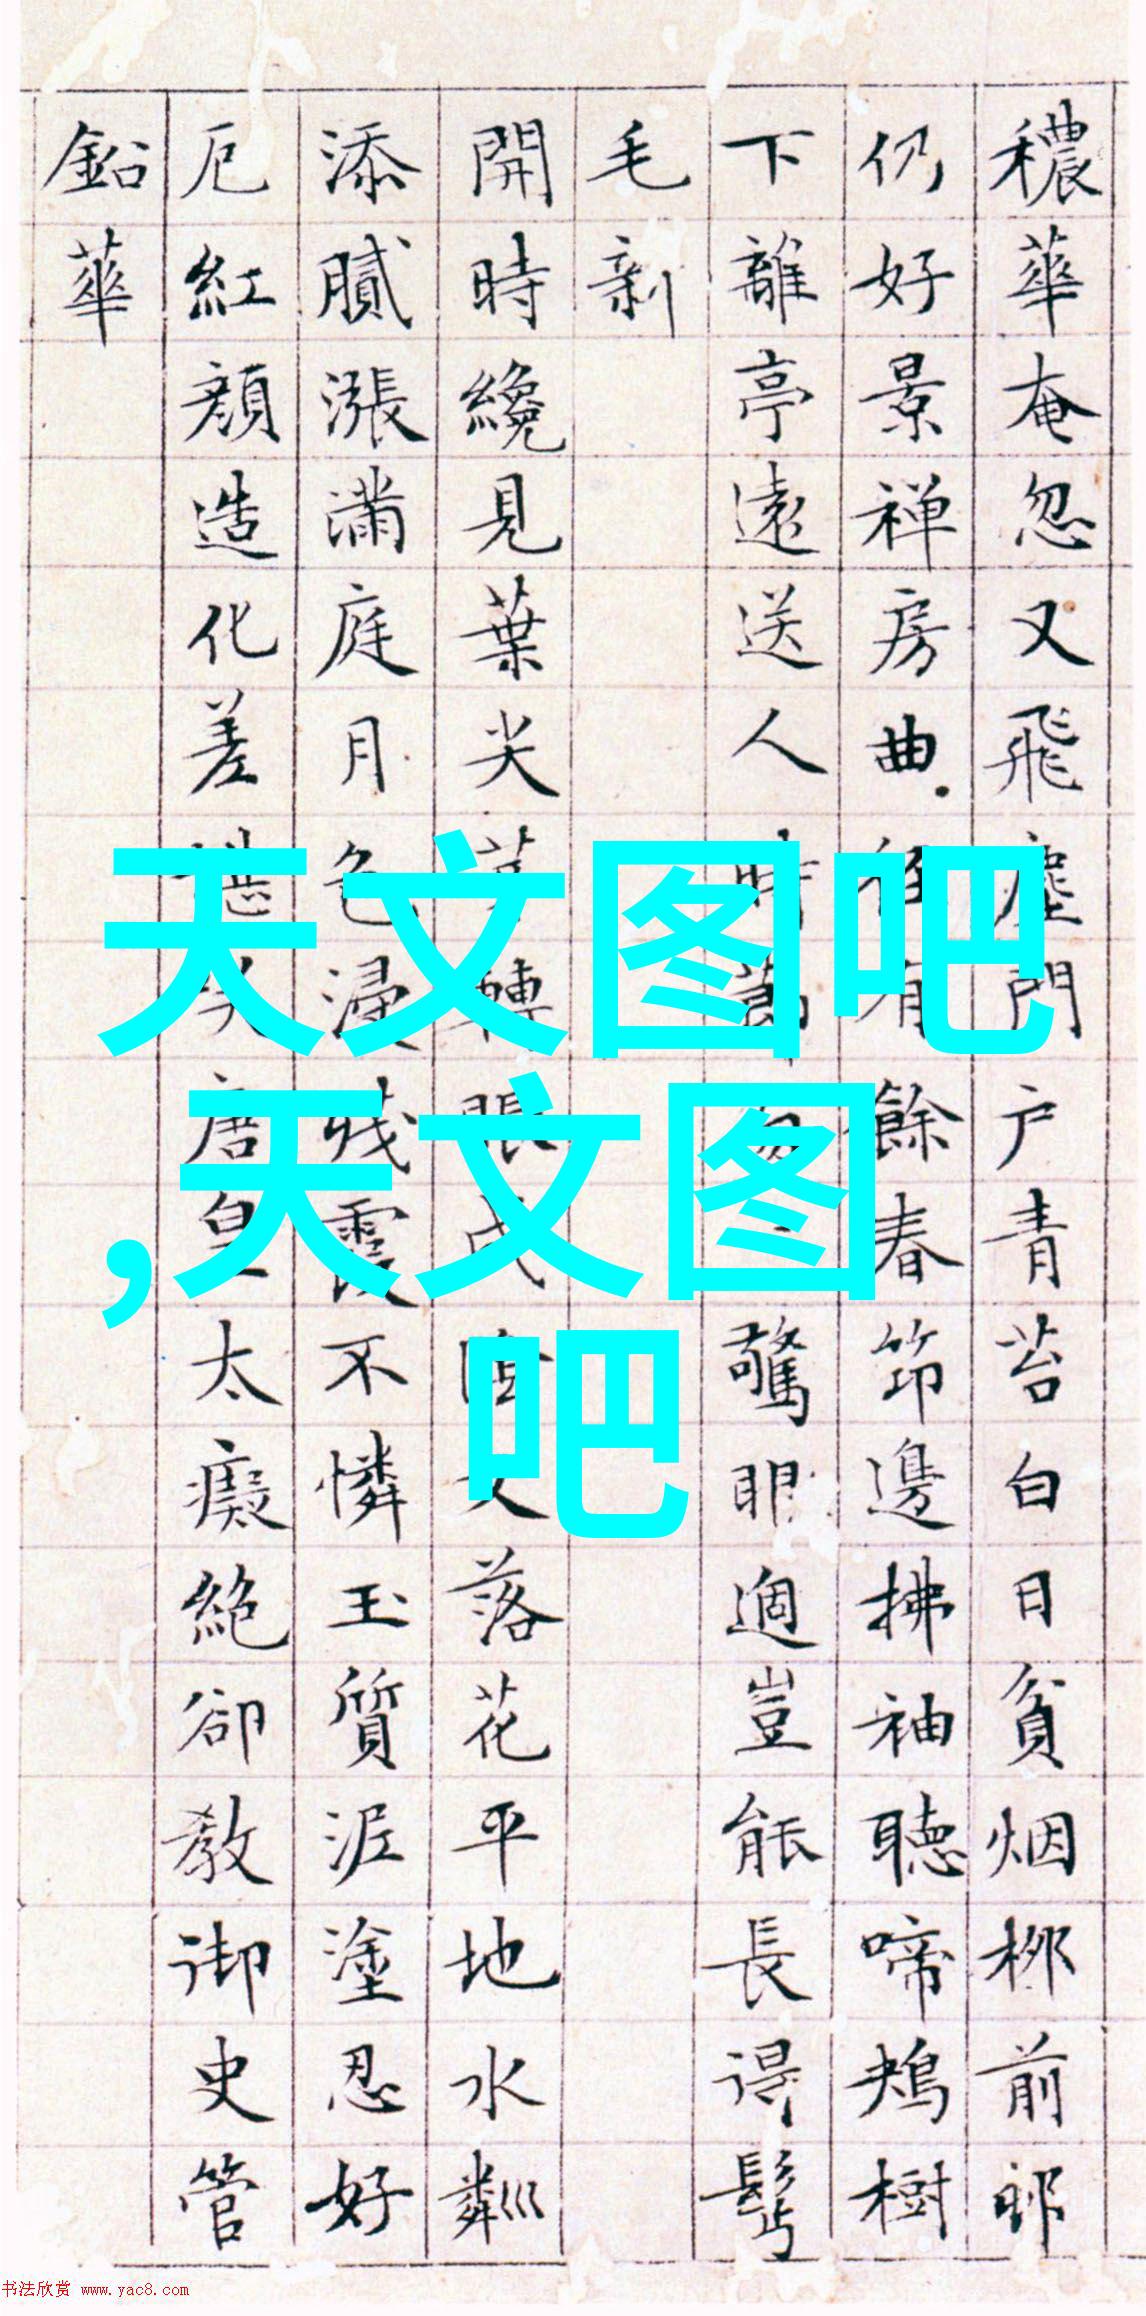 穠華奄忽又飛塵門户青苔白日貧烟栁前
仍好景禅房曲有餘春笻邊拂袖聴啼鴂樹
下離亭遠送人時萬驚眼適豈能長得髩
毛新
開時纔見葉尖落花平地水粼巛
添膩漲滿庭月色浸殘霞不憐玉質泥塗忍好
厄紅顔造化差堪笑唐皇太癡絶卻教御史管
鉛華
天文图吧
,天文图
吧
书法欣赏 www.yac8.com